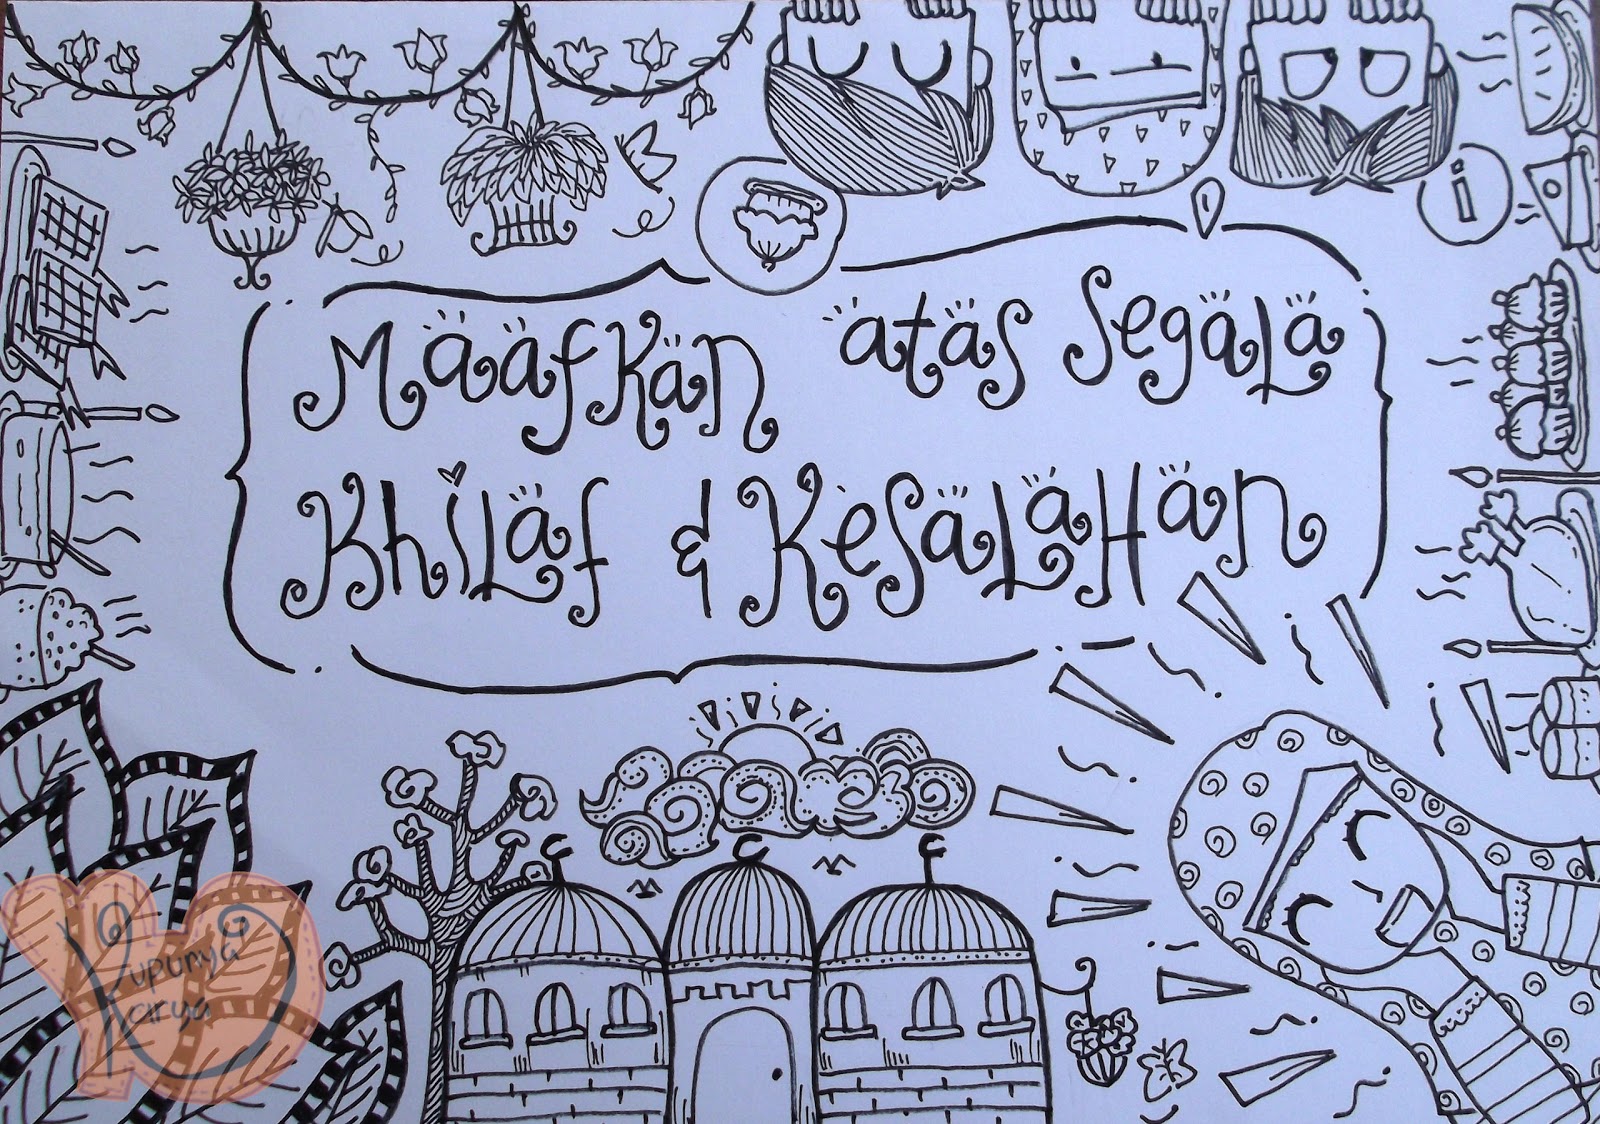 Maafkan atas Segala
Khilaf & KesalaHan
i
Kupunya
Karya